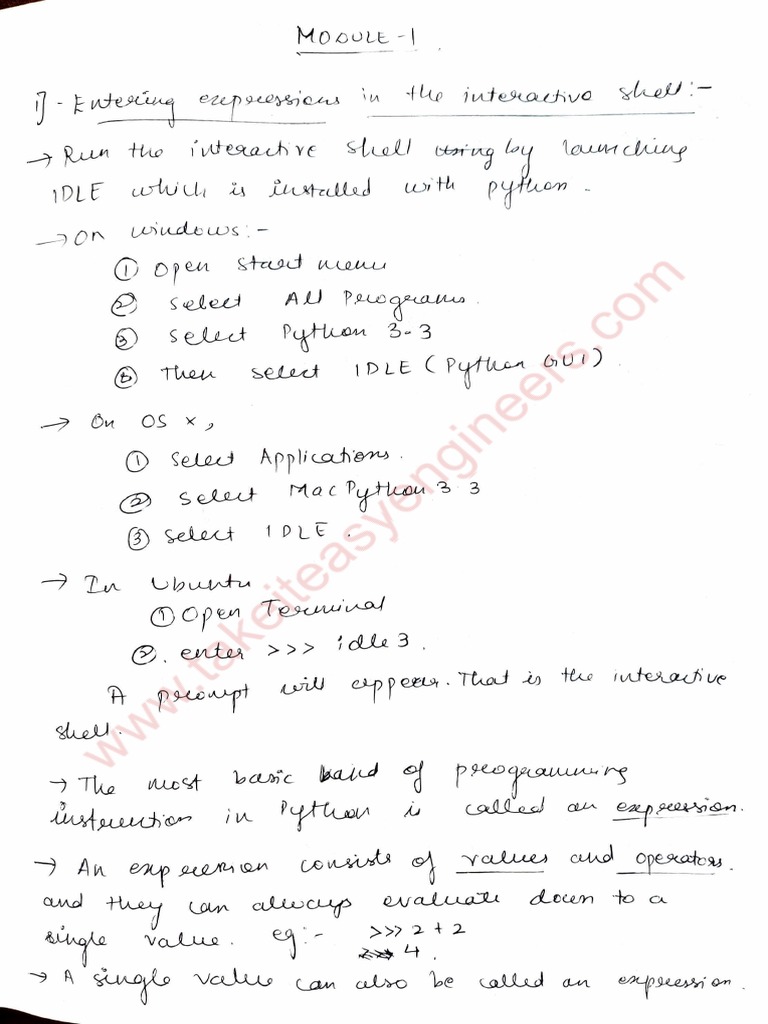 MODULE-1
1] - Entering expressions in the interactive shell:-
→ Run the interactive shell using by launching
IDLE which is installed with python.
→ On windows:-
① Open start menu
② Select All Programs.
③ Select Python 3-3
⑤ Then select IDLE (Python GUI).
→ On OS x,
① Select Applications.
② Select MacPython 3 3
③ Select IDLE.
→ In Ubuntu
① Open Terminal
②. enter >>> idle3.
A prompt will appear. That is the interactive
shell.
→ The most basic kind of programming
instruction in Python is called an expression.
→ An expression consists of values and operators.
and they can always evaluate down to a
single value. eg:- >>> 2 + 2
4.
→ A single value can also be called an expression.
www.takeiteasyengineers.com